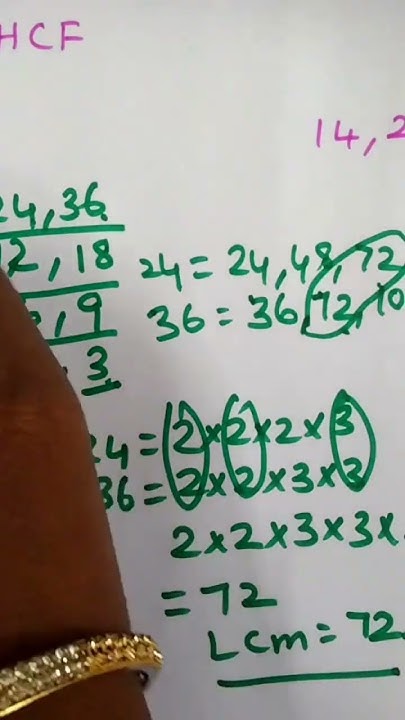 HCF
14, 2
24, 36
12, 18
, 9
3
24 = 24, 48, 72
36 = 36, 72, 10
24 = 2 × 2 × 2 × 3
36 = 2 × 2 × 3 × 3
2 × 2 × 3 × 3 ×
= 72
LCM = 72